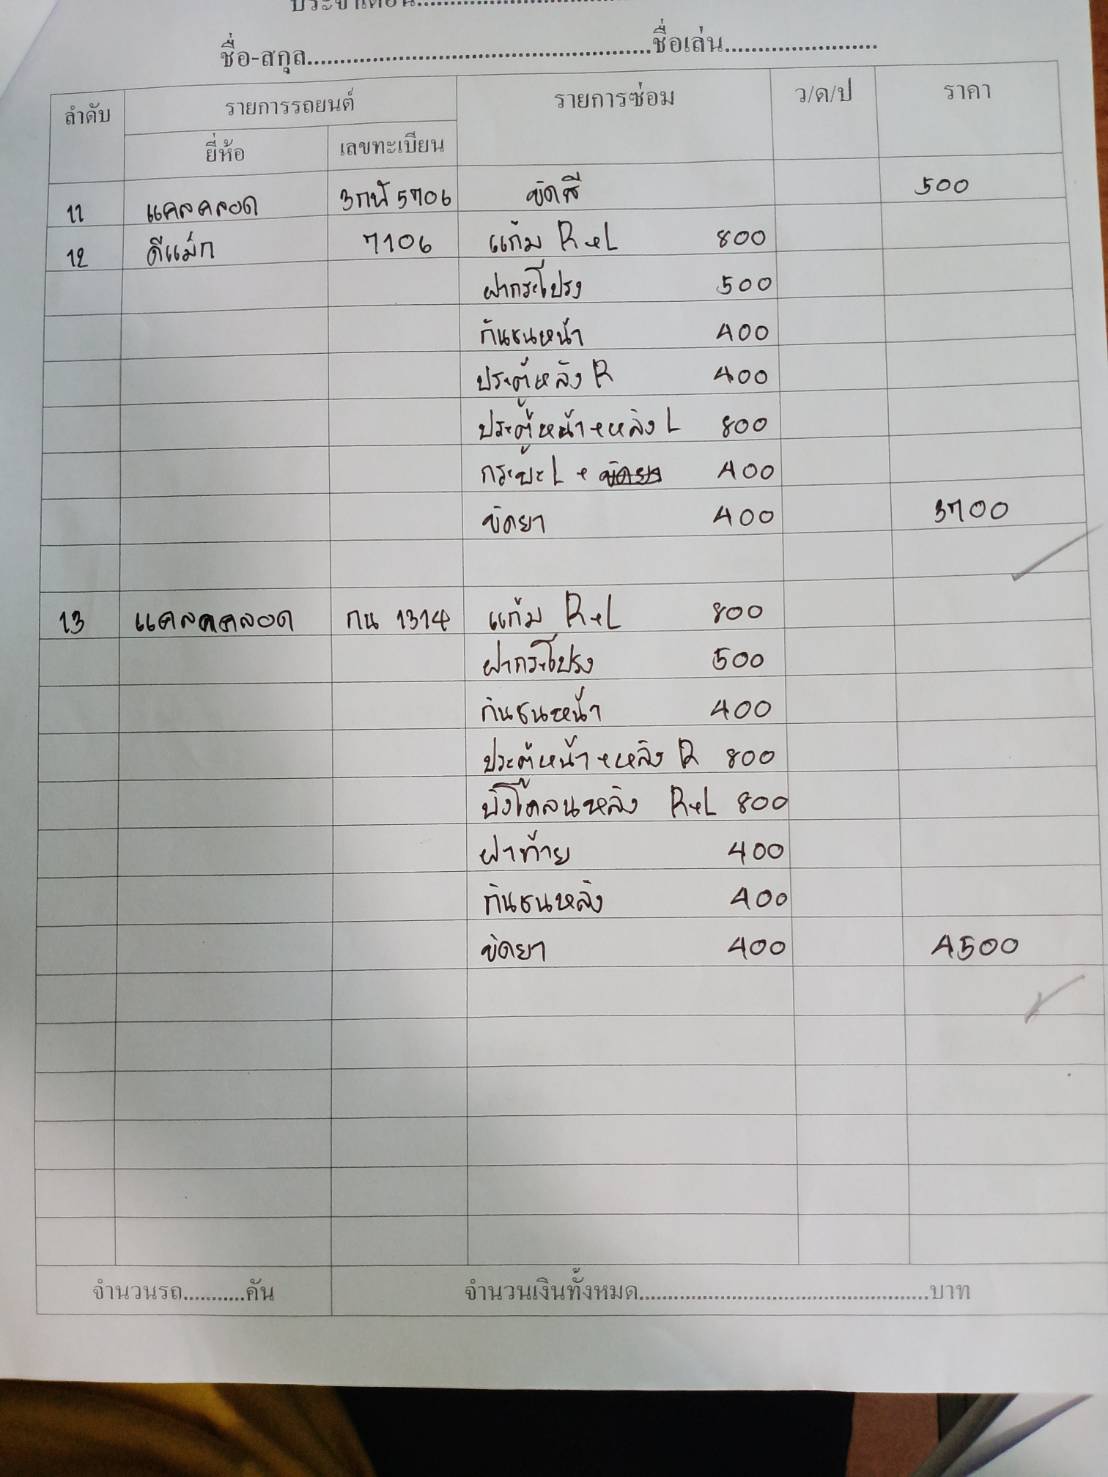 ประจำเดือน
ชื่อ-สกุล ชื่อเล่น
ลำดับ รายการรถยนต์ รายการซ่อม ว/ด/ป ราคา
ยี่ห้อ เลขทะเบียน
11 แคลคลอด 5706 ขัดสี 500
12 ดีแม็ก 7106 แก้ม R+L 800
ฝากระโปรง 500
กันชนหน้า 400
ประตูหลัง R 400
ประตูหน้า+หลัง L 800
กระบะ L + 400
ขัดยา 400 3700
13 กน 1314 แก้ม R+L 800
ฝากระโปรง 500
กันชนหน้า 400
ประตูหน้า+หลัง R 800
บังโคลนหลัง R+L 800
ฝาท้าย 400
กันชนหลัง 400
ขัดยา 400 4500
จำนวนรถ...........คัน จำนวนเงินทั้งหมด...............................................บาท